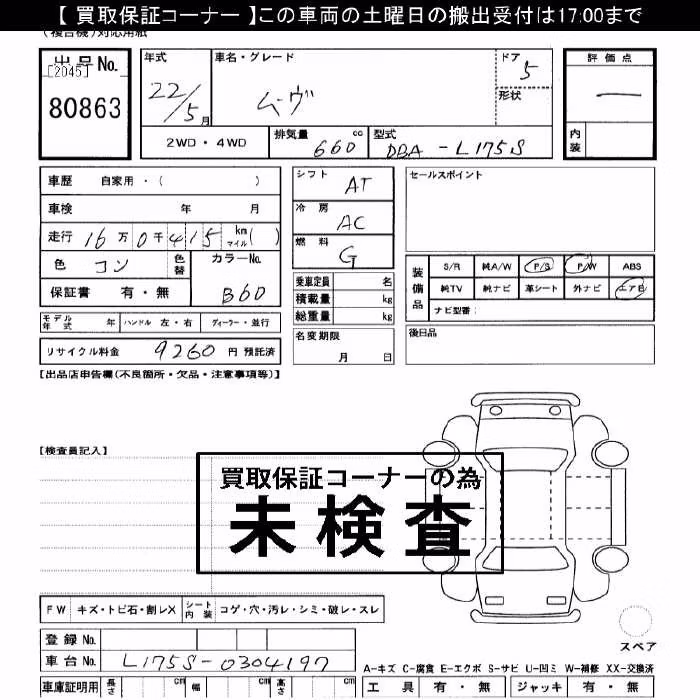 【 買取保証コーナー 】この車両の土曜日の搬出受付は17:00まで
(複合機)対応用紙
出品No.
[2045]
80863
年式
22/5月
車名・グレード
ムーヴ
ドア
5
形状
評価点
—
内装
2WD・4WD
排気量 660 cc
型式 DBA-L175S
車歴 自家用・( )
車検 年 月
走行 16万0千415 km マイル( )
色 コン
色替
カラーNo.
B60
保証書 有・無
シフト AT
冷房 AC
燃料 G
乗車定員 名
積載量 kg
総重量 kg
セールスポイント
装備品
S/R 純A/W P/S P/W ABS
純TV 純ナビ 革シート 外ナビ エアB
ナビ型番:
モデル年式 年 ハンドル 左・右 ディーラー・並行
名変期限
月 日
後日品
リサイクル料金 9260 円 預託済
【出品店申告欄(不良箇所・欠品・注意事項等)】
【検査員記入】
買取保証コーナーの為
未検査
FW キズ・トビ石・割レX シート内装 コゲ・穴・汚レ・シミ・破レ・スレ
登録No.
車台No. L175S-0304197
スペア
A-キズ C-腐食 E-エクボ S-サビ U-凹ミ W-補修 XX-交換済
車庫証明用 長さ cm 幅 cm 高さ cm
工具 有・無 ジャッキ 有・無